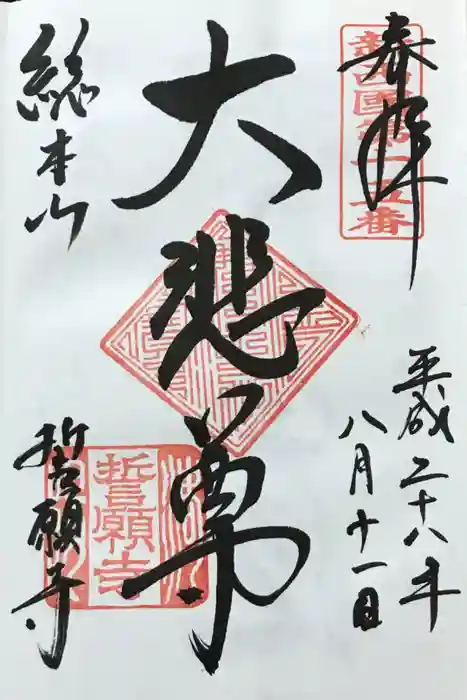 奉拝
新西国第十五番
平成二十八年
八月十一日
大悲尊
総本山
誓願寺
誓願寺